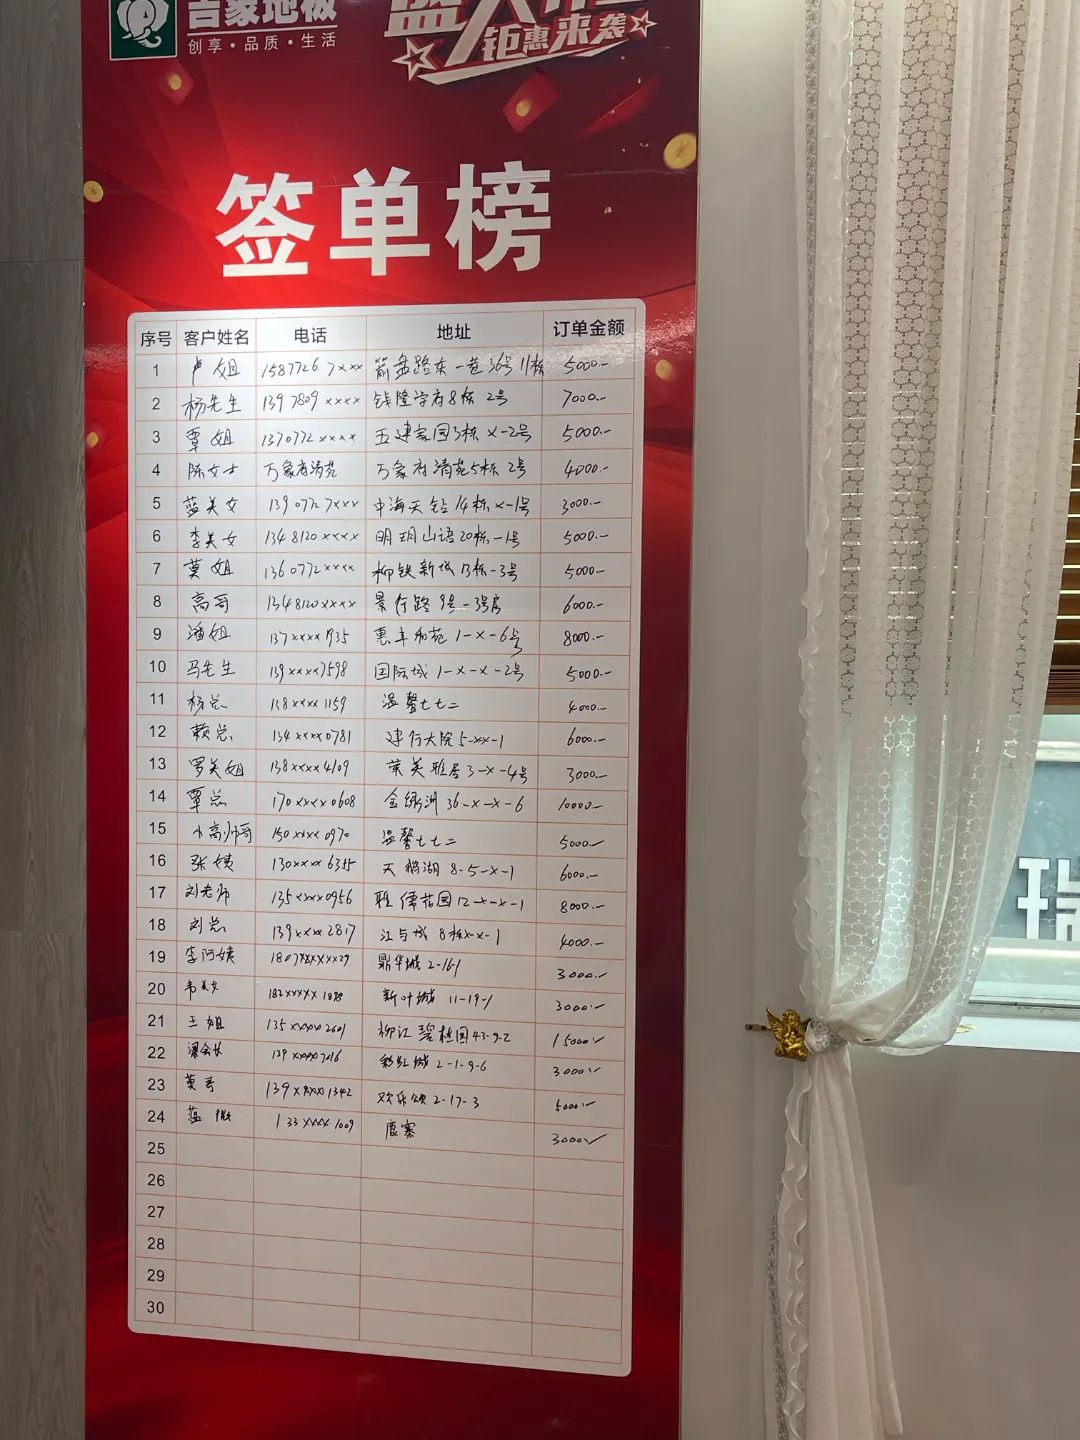 吉象地板
创享·品质·生活
钜惠来袭
签单榜
序号 客户姓名 电话 地址 订单金额
1 卢姐 1587726 7xxx 箭盘路东一巷36号11栋 5000.-
2 杨先生 1397809 xxxx 钱隆学府8栋 2号 7000.-
3 覃姐 1370772 xxxx 五建家园3栋 x-2号 5000.-
4 陈女士 万象府清苑 万象府清苑5栋 2号 4000.-
5 蓝美女 1390772 7xxx 中海天钻14栋 x-1号 3000.-
6 李美女 1348120 xxxx 明玥山语20栋-1号 5000.-
7 莫姐 1360772 xxxx 柳铁新城13栋-3号 5000.-
8 高哥 1348120xxxx 景行路9号-3号房 6000.-
9 潘姐 137xxxx1935 惠丰和苑 1-x-6号 8000.-
10 马先生 139xxxx7598 国际城 1-x-x-2号 5000.-
11 杨总 138xxxx1159 温馨七七二 4000.-
12 赖总 134xxxx0781 建行大院 5-xx-1 6000.-
13 罗美姐 138xxxx4109 荣美雅居 3-x-4号 3000.-
14 覃总 170xxxx0608 金绿洲 36-x-x-6 10000.-
15 小高帅哥 150xxxx0970 温馨七七二 5000
16 张姨 130xxxx6355 天鹅湖 8-5-x-1 6000.-
17 刘老师 135xxxx0956 雅儒花园12-x-x-1 8000.-
18 刘总 139xxxx2817 江与城 8栋x-x-1 4000.-
19 李阿姨 鼎华城 2-16-1 3000
20 韦美女 新叶城 11-19-1 3000
21 王姐 135xxxx2601 柳江碧桂园43-9-2 15000
22 梁会长 139xxxx7016 彩虹城 2-1-9-6 3000
23 莫哥 139xxxx1342 欢乐颂 2-17-3 5000
24 蓝 133xxxx1009 鹿寨 3000
25
26
27
28
29
30